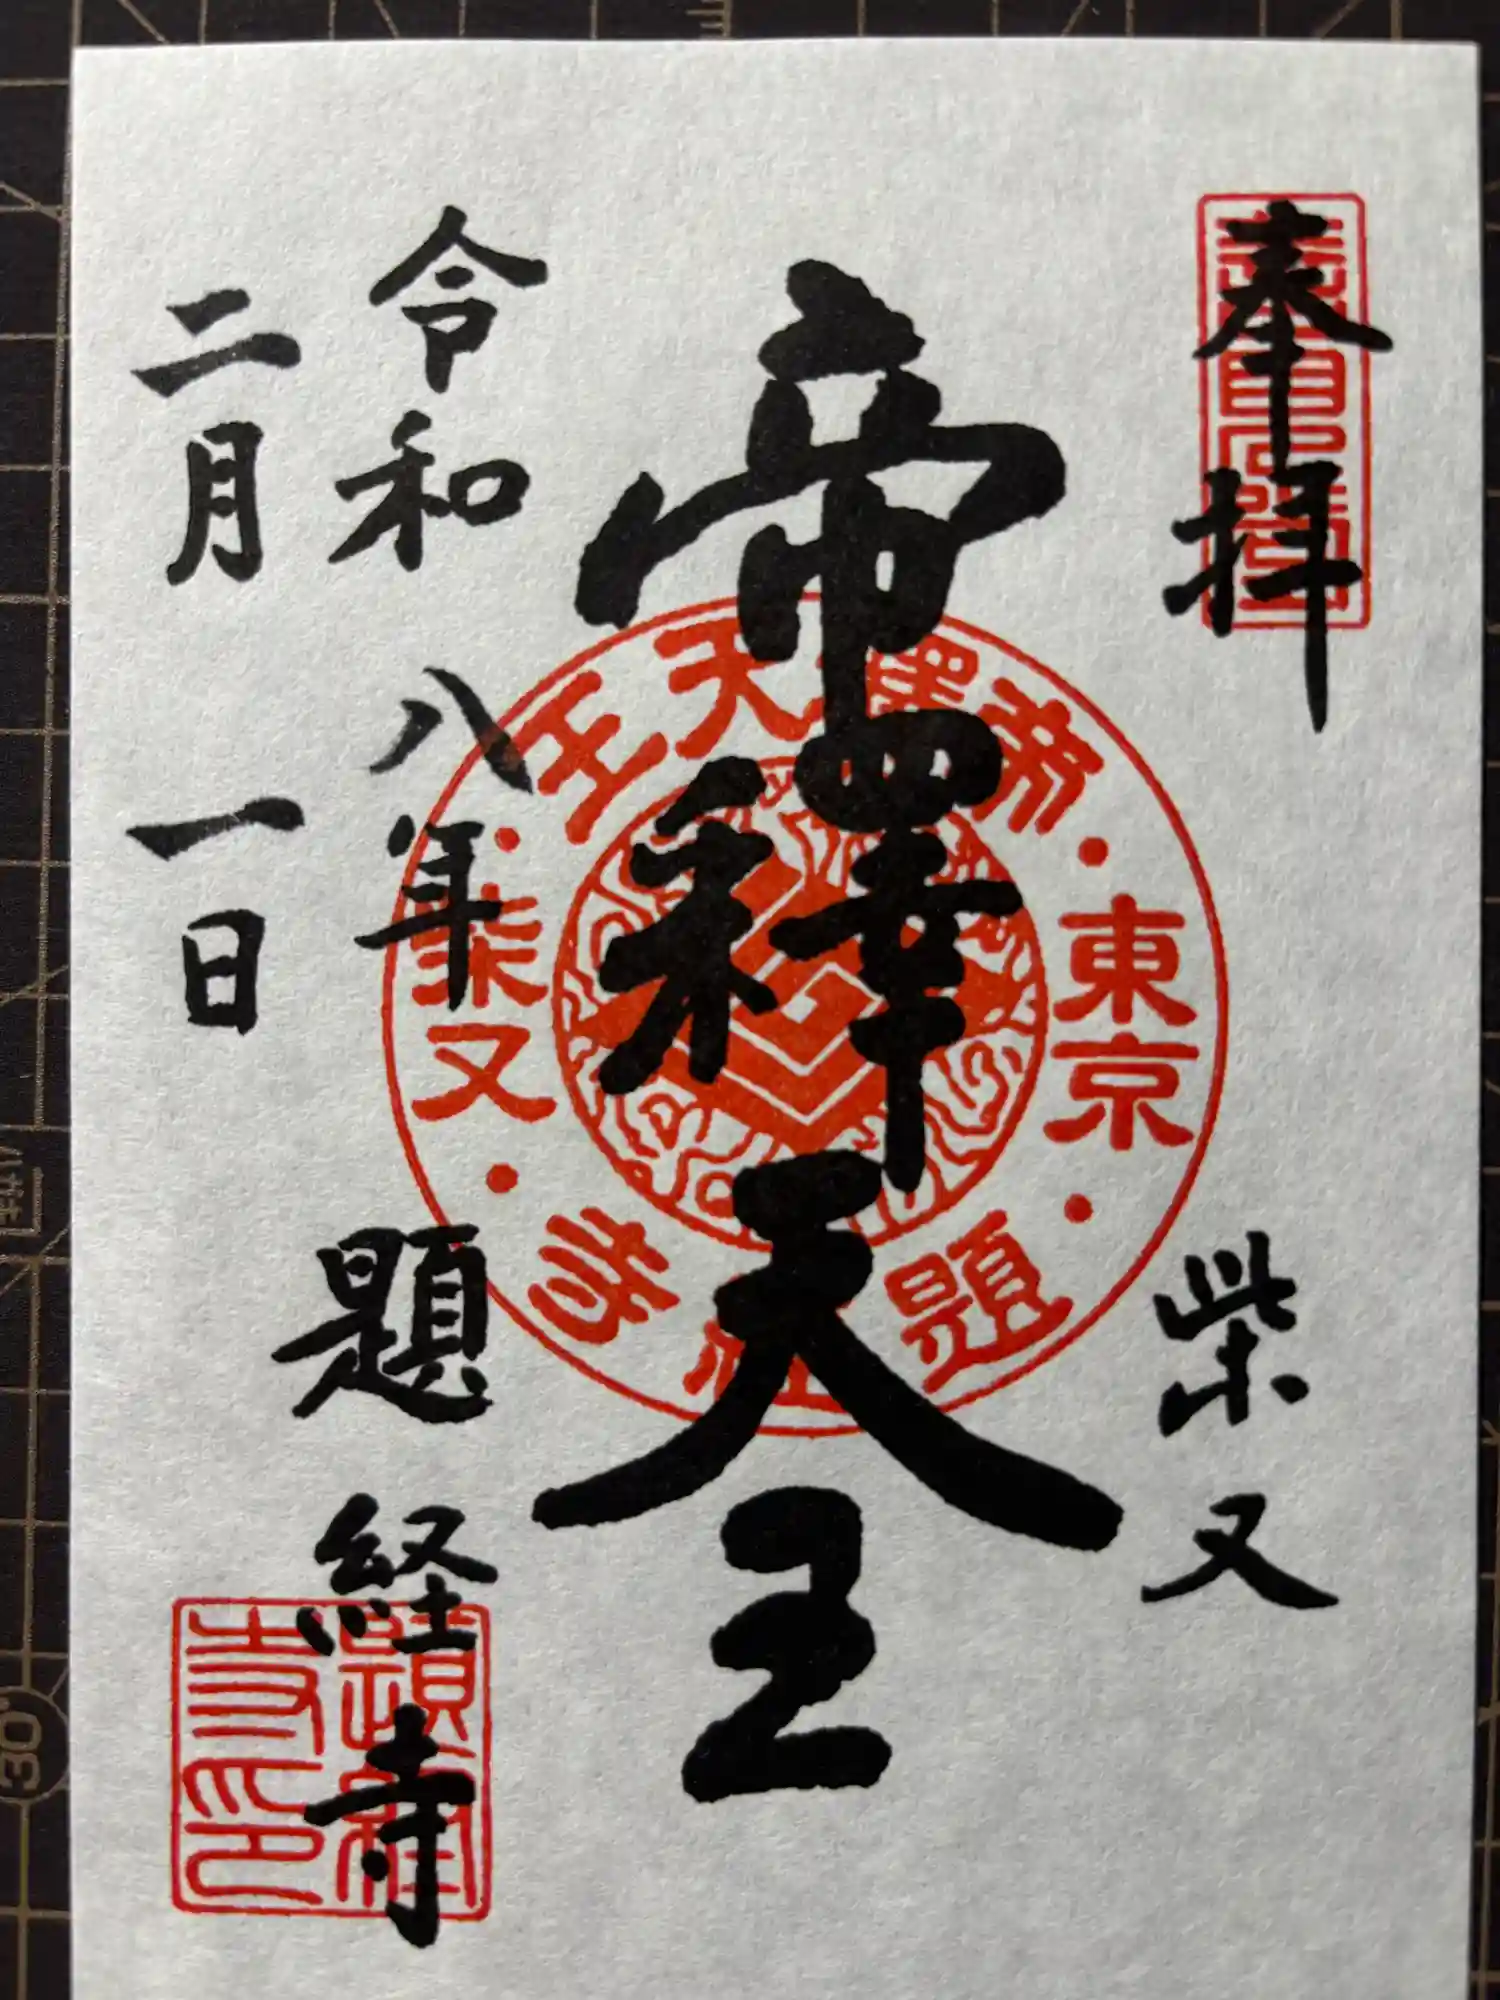 奉拝
柴又
帝釋天王
令和八年
二月一日
題経寺
帝釋天王
東京
柴又
題経寺
題経寺印